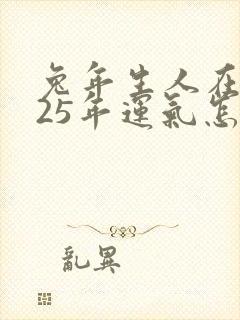 兔年生人在
25年運氣怎
亂異